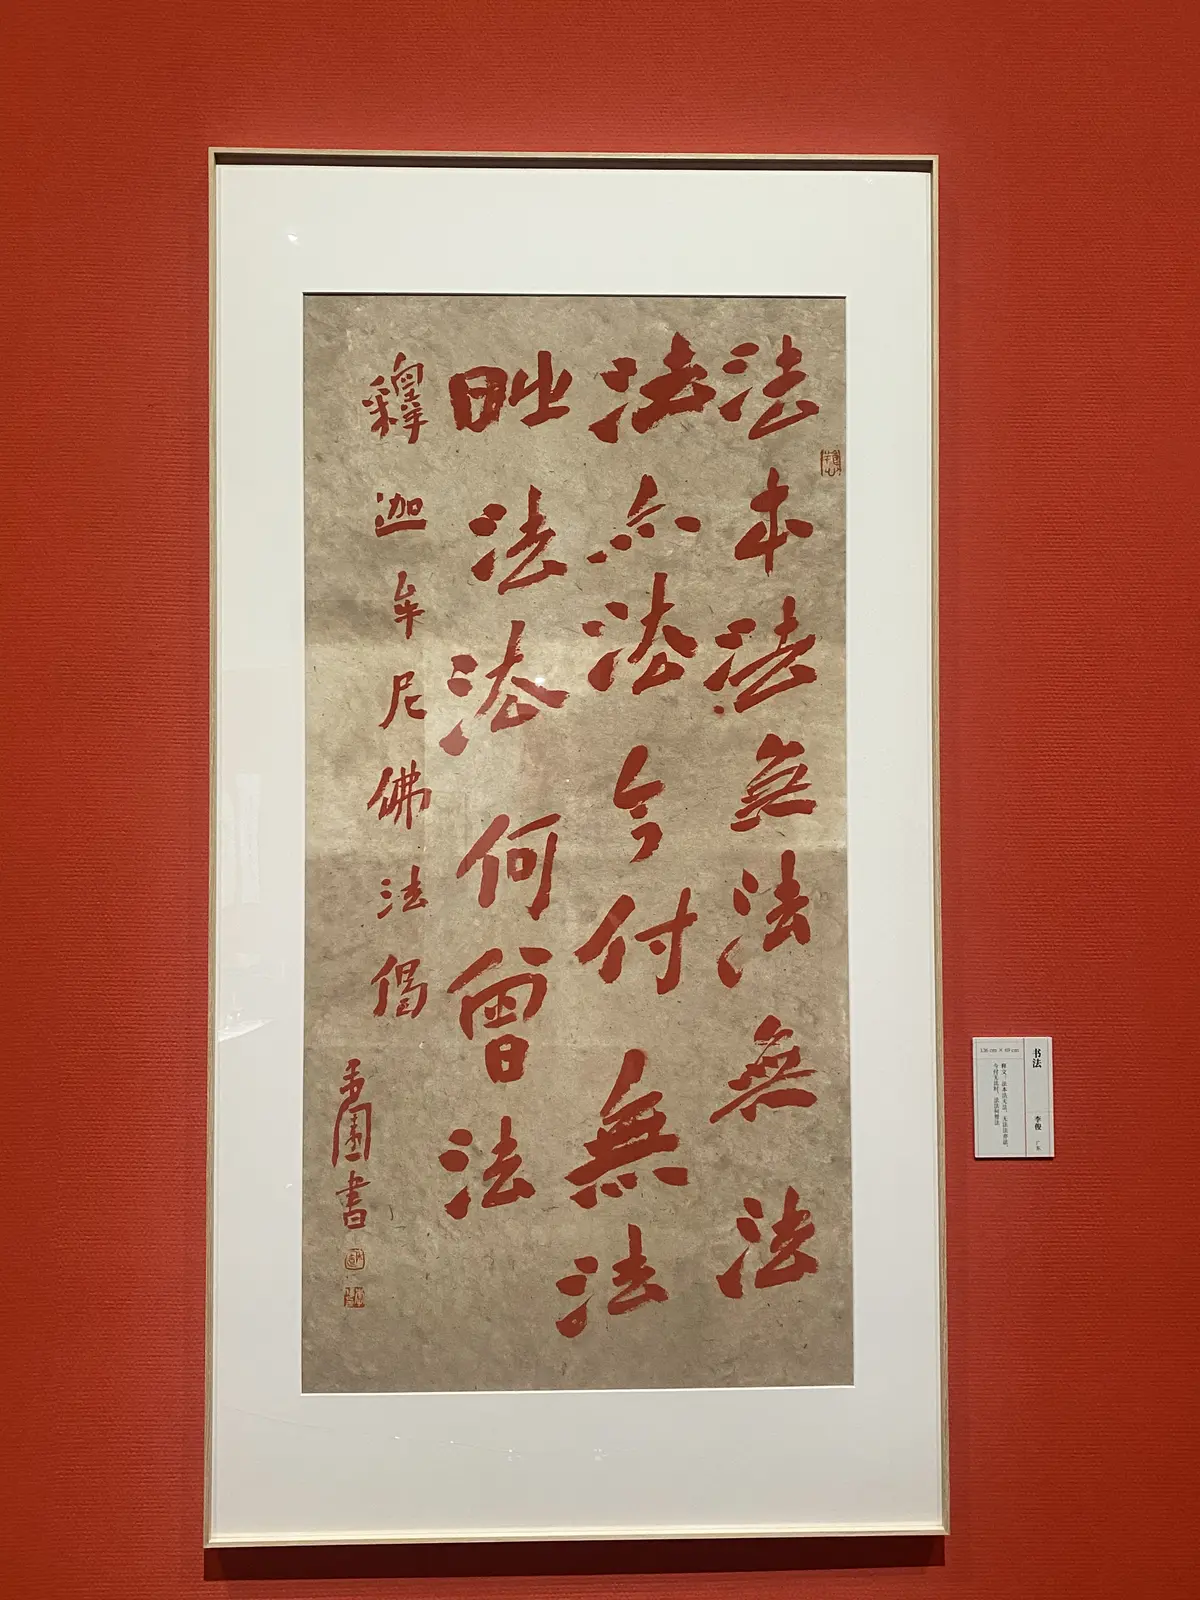 法本法無法無法
法亦法今付無法
時法法何曾法
釋迦牟尼佛法偈
書
书法 李俊 广东
释文：法本法无法，无法法亦法。
今付无法时，法法何曾法